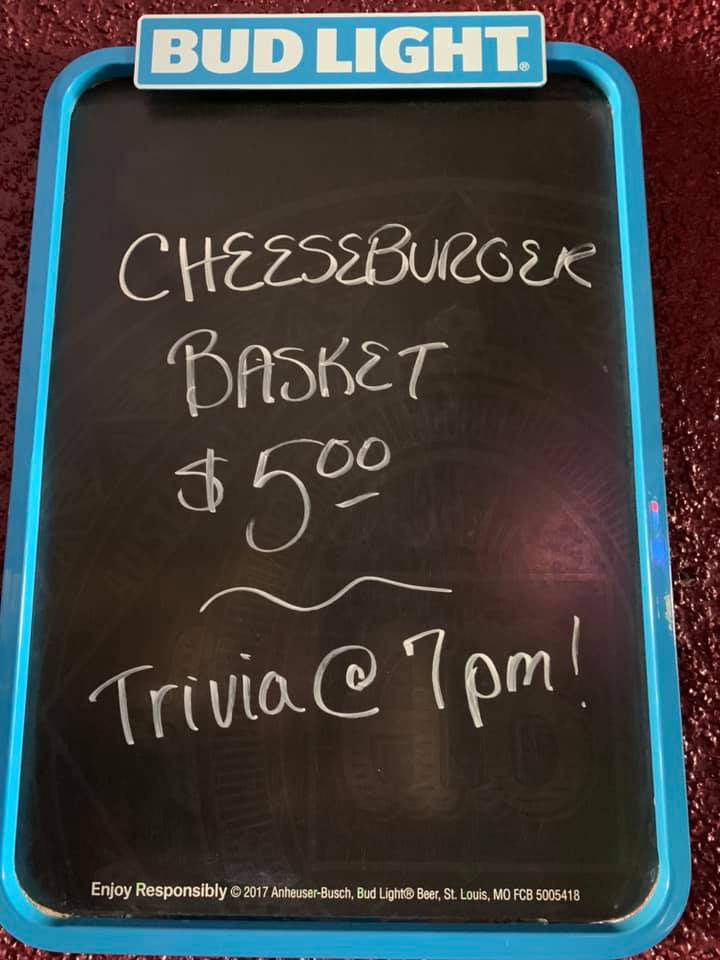 BUD LIGHT®
CHEESEBURGER
BASKET
$5.00
Trivia @ 7pm!
Enjoy Responsibly © 2017 Anheuser-Busch, Bud Light® Beer, St. Louis, MO FCB 5005418